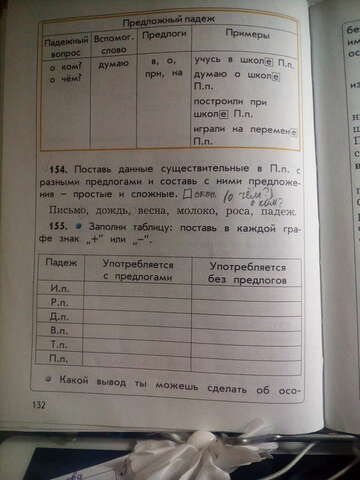 Предложный падеж
Падежный вопрос
Вспомог. слово
Предлоги
Примеры
о ком?
о чём?
думаю
в, о,
при, на
учусь в школе П.п.
думаю о школе
П.п.
построили при
школе П.п.
играли на перемене
П.п.
154. Поставь данные существительные в П.п. с
разными предлогами и составь с ними предложе-
ния – простые и сложные. (о чём?)
о ком?
Письмо, дождь, весна, молоко, роса, падеж.
155. • Заполни таблицу: поставь в каждой гра-
фе знак „+" или „–".
Падеж
Употребляется с предлогами
Употребляется без предлогов
И.п.
Р.п.
Д.п.
В.п.
Т.п.
П.п.
• Какой вывод ты можешь сделать об осо-
132